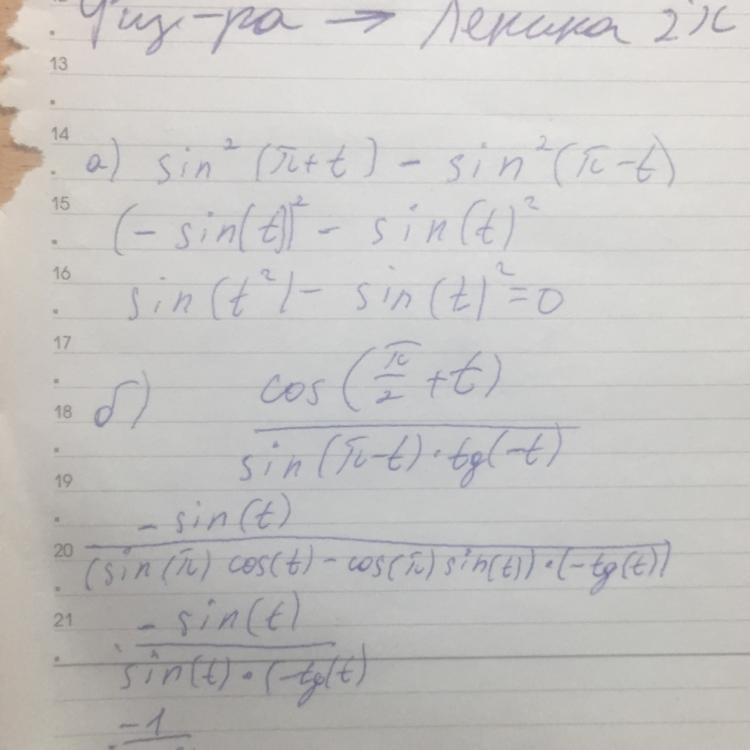 Физ-ра → Лекция 2х
13
14
а) sin² (π+t) - sin² (π-t)
15
(- sin(t))² - sin(t)²
16
sin(t²) - sin(t)² = 0
17
б) cos(π/2 + t)
18
sin(π-t)·tg(-t)
19
- sin(t)
20
(sin(π) cos(t) - cos(π) sin(t))·(-tg(t))
21
- sin(t)
sin(t)·(-tg(t)
-1